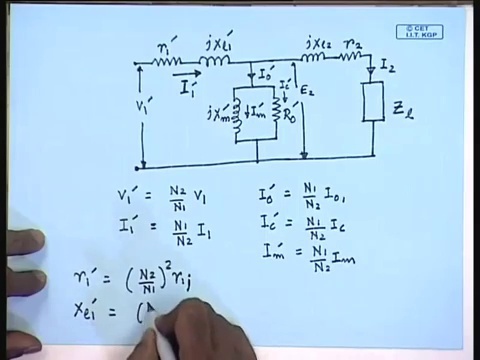 © CET
I.I.T. KGP
r₁′ jxℓ₁′ jxℓ₂ r₂
I₁′ I₀′ Ic′ E₂ I₂
V₁′ jXm′ Im′ R₀′ Zℓ
V₁′ = N₂/N₁ V₁ I₀′ = N₁/N₂ I₀,
I₁′ = N₁/N₂ I₁ Ic′ = N₁/N₂ Ic
Im′ = N₁/N₂ Im
r₁′ = (N₂/N₁)² r₁;
xℓ₁′ = (